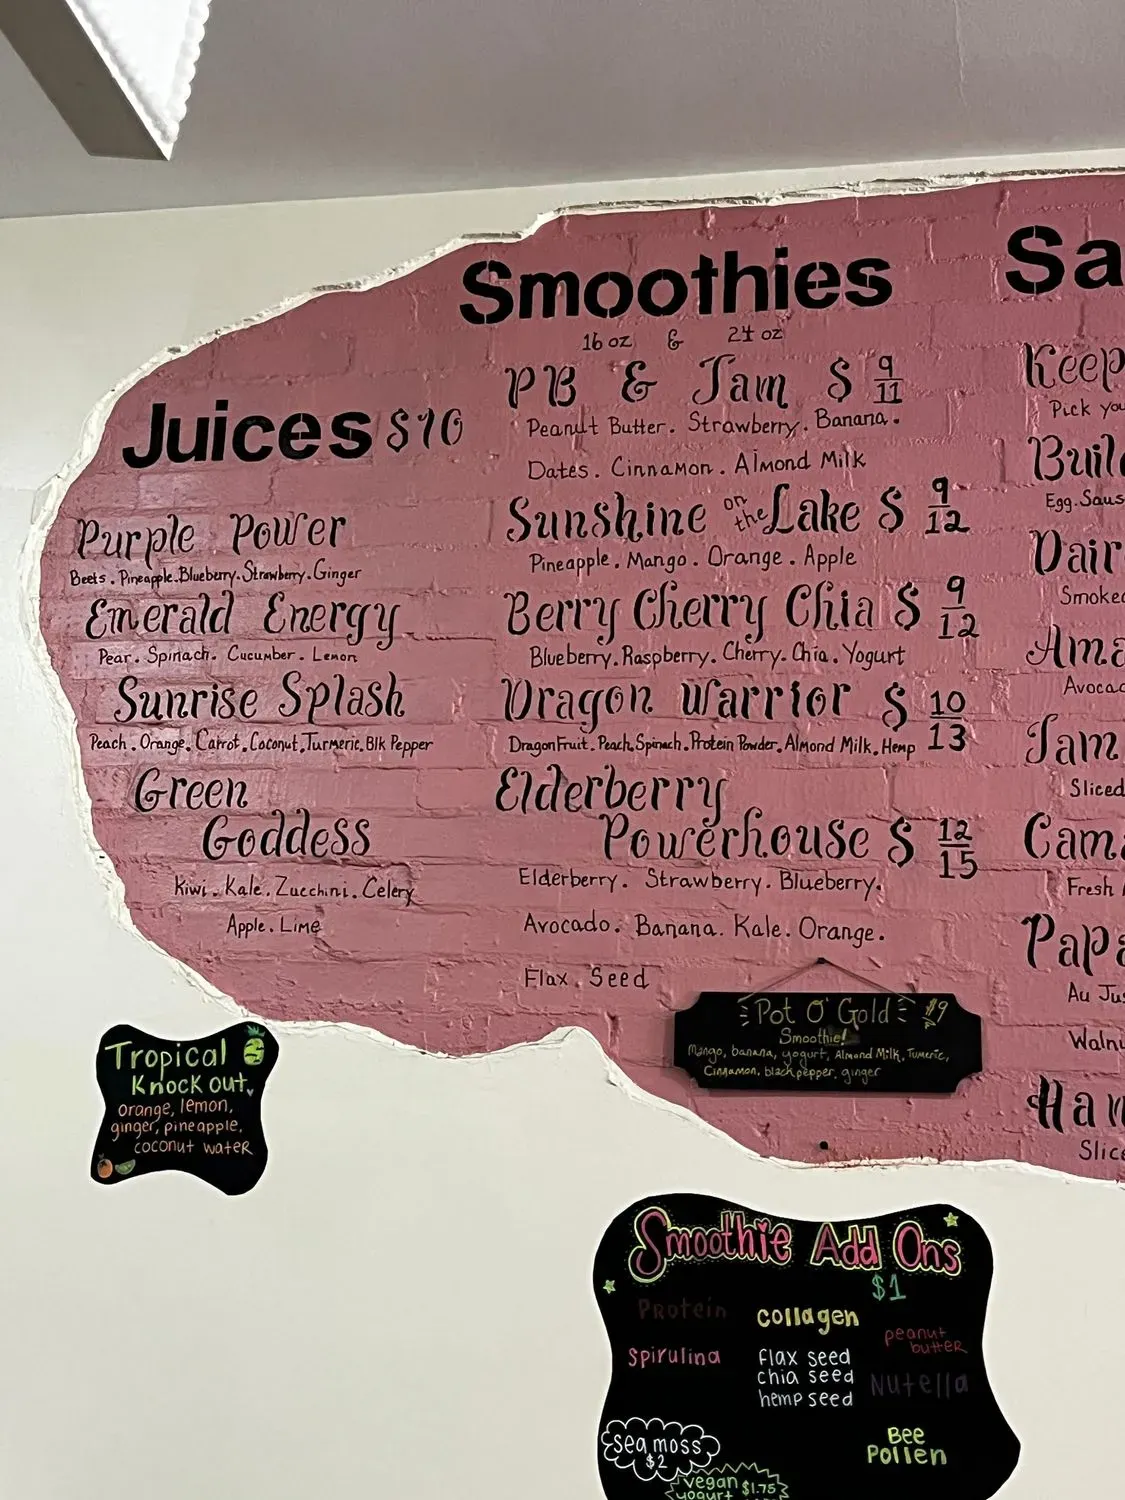 Juices $10
Purple Power
Beets. Pineapple. Blueberry. Strawberry. Ginger
Emerald Energy
Pear. Spinach. Cucumber. Lemon
Sunrise Splash
Peach. Orange. Carrot. Coconut. Turmeric. Blk Pepper
Green
Goddess
Kiwi. Kale. Zucchini. Celery
Apple. Lime
Tropical
Knock out
orange, lemon,
ginger, pineapple,
coconut water
Smoothies
16 oz & 24 oz
PB & Jam $ 9/11
Peanut Butter. Strawberry. Banana.
Dates. Cinnamon. Almond Milk
Sunshine on the Lake $ 9/12
Pineapple. Mango. Orange. Apple
Berry Cherry Chia $ 9/12
Blueberry. Raspberry. Cherry. Chia. Yogurt
Dragon Warrior $ 10/13
DragonFruit. Peach. Spinach. Protein Powder. Almond Milk. Hemp
Elderberry
Powerhouse $ 12/15
Elderberry. Strawberry. Blueberry.
Avocado. Banana. Kale. Orange.
Flax. Seed
Pot O' Gold $9
Smoothie!
Mango, banana, yogurt, Almond Milk, Tumeric,
Cinnamon, black pepper, ginger
Smoothie Add Ons
$1
Protein
collagen
peanut
butter
Spirulina
flax seed
chia seed
hemp seed
Nutella
Bee
Pollen
sea moss
$2
vegan
yogurt $1.75
Sa
Keep
Pick you
Buil
Egg. Saus
Dair
Smoked
Ama
Avocad
Jam
Sliced
Cam
Fresh
Papa
Au Jus
Walnu
Ham
Slice